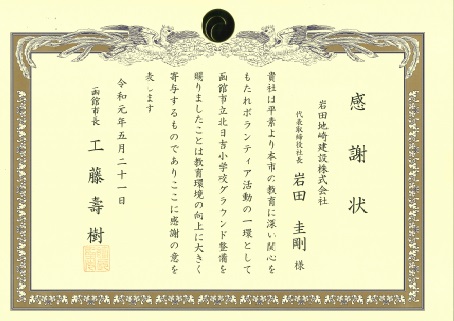 感謝状
岩田地崎建設株式会社
代表取締役社長 岩田 圭剛 様
貴社は平素より本市の教育に深い関心を
もたれボランティア活動の一環として
函館市立北日吉小学校グラウンド整備を
賜りましたことは教育環境の向上に大きく
寄与するものでありここに感謝の意を
表します
令和元年五月二十一日
函館市長 工藤壽樹